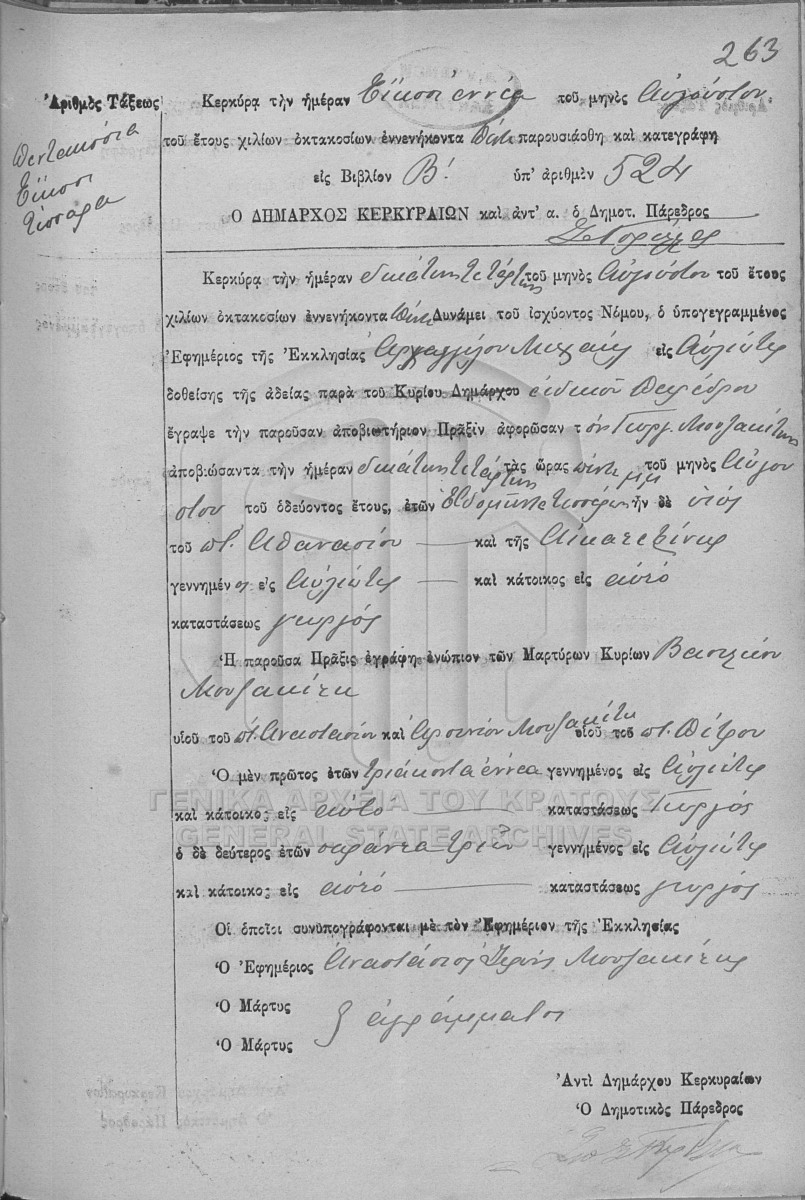 263
Ἀριθμὸς Τάξεως
Πεντακόσια
Εἴκοσι
τέσσαρα
Κερκύρᾳ τὴν ἡμέραν Εἴκοσι ἐννέα τοῦ μηνὸς Αὐγούστου
τοῦ ἔτους χιλίων ὀκτακοσίων ἐννενήκοντα πέντε παρουσιάσθη καὶ κατεγράφη
εἰς Βιβλίον Β! ὑπ' ἀριθμὸν 524
Ὁ ΔΗΜΑΡΧΟΣ ΚΕΡΚΥΡΑΙΩΝ καὶ ἀντ' α. ὁ Δημοτ. Πάρεδρος
Κερκύρᾳ τὴν ἡμέραν δεκάτην τετάρτην τοῦ μηνὸς Αὐγούστου τοῦ ἔτους
χιλίων ὀκτακοσίων ἐννενήκοντα πέντε Δυνάμει τοῦ ἰσχύοντος Νόμου, ὁ ὑπογεγραμμένος
Ἐφημέριος τῆς Ἐκκλησίας Ἀρχαγγέλου Μιχαήλ εἰς Αὐλιώτες
δοθείσης τῆς ἀδείας παρὰ τοῦ Κυρίου Δημάρχου εἰδικοῦ Παρέδρου
ἔγραψε τὴν παροῦσαν ἀποβιωτήριον Πρᾶξιν ἀφορῶσαν τὸν Γεώργ. Μουζακίτην
ἀποβιώσαντα τὴν ἡμέραν δεκάτην τετάρτην τὰς ὥρας πέντε μμ τοῦ μηνὸς Αὐγού
στου τοῦ ὁδεύοντος ἔτους, ἐτῶν Ἑβδομῆντα τεσσάρων ἦν δὲ υἱός
τοῦ πτ. Ἀθανασίου καὶ τῆς Αἰκατερίνης
γεννημένος εἰς Αὐλιώτες καὶ κάτοικος εἰς αὐτό
καταστάσεως γεωργός
Ἡ παροῦσα Πρᾶξις ἐγράφη ἐνώπιον τῶν Μαρτύρων Κυρίων Βασιλείου
Μουζακίτη
υἱοῦ τοῦ πτ. Ἀναστασίου καὶ Ἀρσενίου Μουζακίτη υἱοῦ τοῦ πτ. Πέτρου
Ὁ μὲν πρῶτος ἐτῶν τριάκοντα ἐννέα γεννημένος εἰς Αὐλιώτες
καὶ κάτοικος εἰς αὐτό καταστάσεως Γεωργός
ὁ δὲ δεύτερος ἐτῶν σαράντα τριῶν γεννημένος εἰς Αὐλιώτες
καὶ κάτοικος εἰς αὐτό καταστάσεως γεωργός
Οἱ ὁποῖοι συνυπογράφονται μὲ τὸν Ἐφημέριον τῆς Ἐκκλησίας
Ὁ Ἐφημέριος Ἀναστάσιος Ἱερεύς Μουζακίτης
Ὁ Μάρτυς
ἀγράμματοι
Ὁ Μάρτυς
Ἀντὶ Δημάρχου Κερκυραίων
Ὁ Δημοτικὸς Πάρεδρος
ΓΕΝΙΚΑ ΑΡΧΕΙΑ ΤΟΥ ΚΡΑΤΟΥΣ
GENERAL STATE ARCHIVES